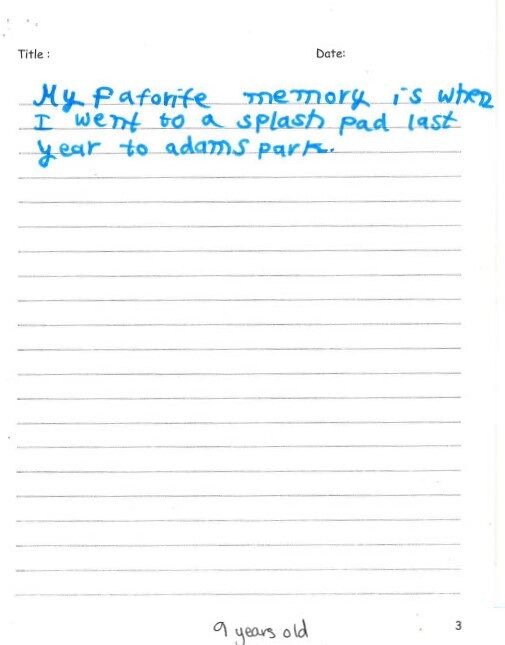 Title : Date:
My faforite memory is when
I went to a splash pad last
year to adams park.
9 years old 3